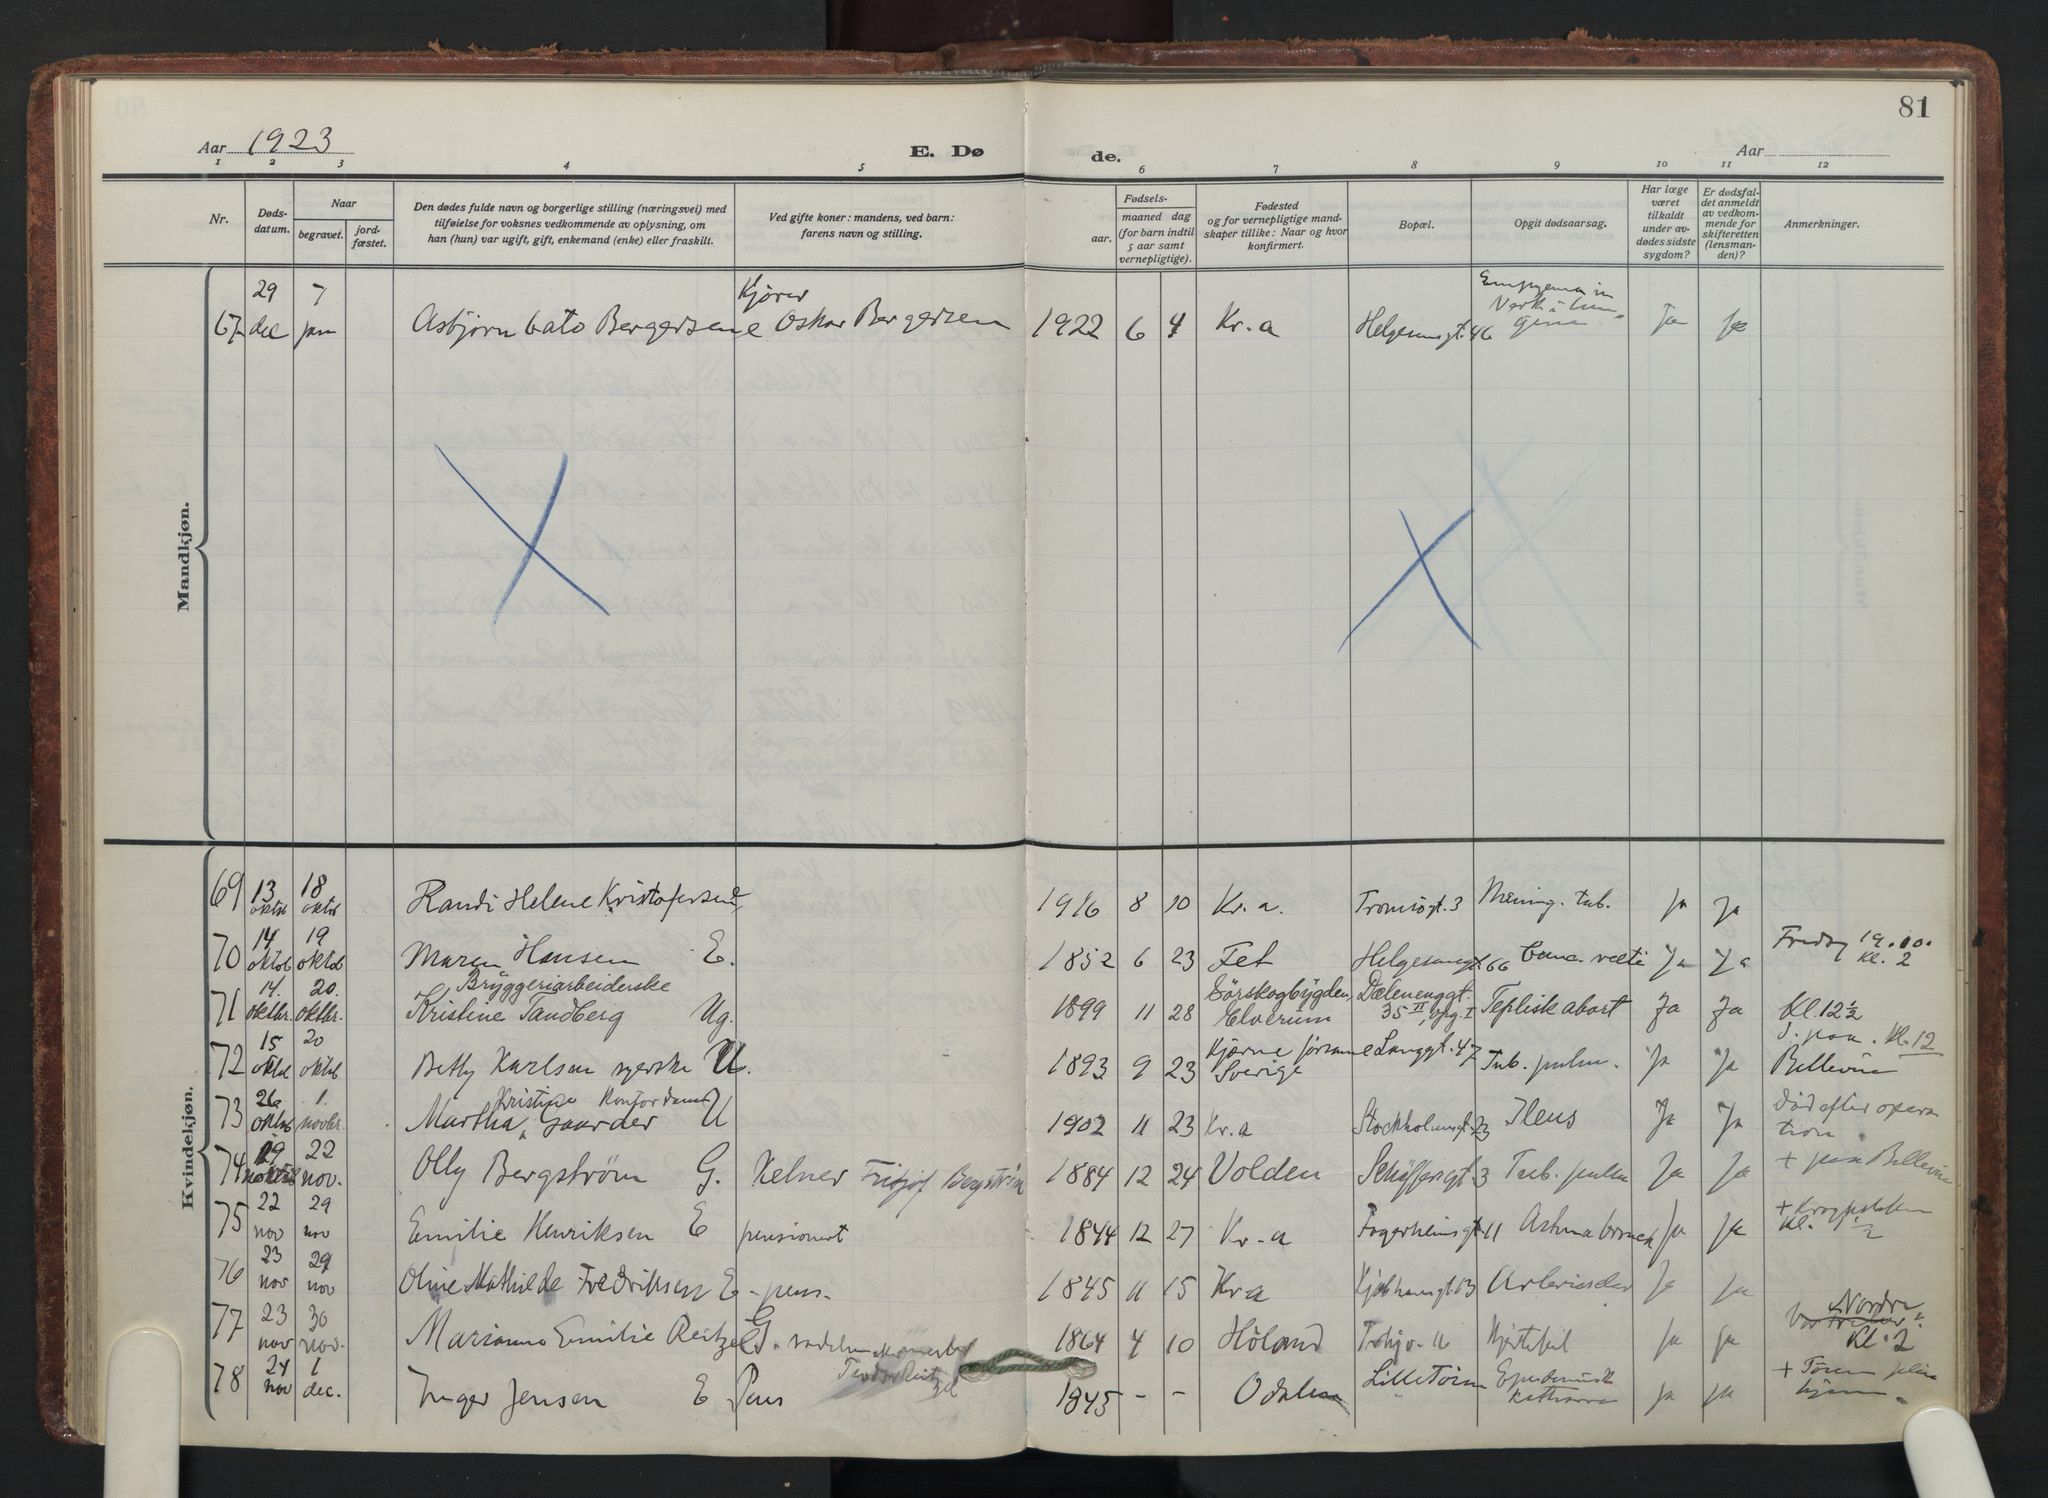 81
Aar 1923
E. Døde.
Aar
1 2 3 4 5 6 7 8 9 10 11 12
Nr.
Døds-
datum.
Naar
begravet.
jord-
fæstet.
Den dødes fulde navn og borgerlige stilling (næringsvei) med
tilføielse for voksnes vedkommende av oplysning, om
han (hun) var ugift, gift, enkemand (enke) eller fraskilt.
Ved gifte koner: mandens, ved barn:
farens navn og stilling.
Fødsels-
aar.
maaned dag
(for barn indtil
5 aar samt
vernepligtige).
Fødested
og for vernepligtige mand-
skaper tillike: Naar og hvor
konfirmert.
Bopæl.
Opgit dødsaarsag.
Har læge
været
tilkaldt
under av-
dødes sidste
sygdom?
Er dødsfal-
det anmeldt
av vedkom-
mende for
skifteretten
(lensman-
den)?
Anmerkninger.
Mandkjøn.
67 29 dec 7 jan Asbjørn Cato Bergersen Kjører Oskar Bergersen 1922 6 4 Kr.a Helgesensgt. 46 Ja Ja
Kvindekjøn.
69 13 oktbr 18 oktbr Randi Helene Kristofersen 1916 8 10 Kr.a. Tromsøgt. 3 Mening. tub. Ja Ja
70 14 oktob 19 oktob Maren Hansen E. 1852 6 23 Fet Helgesensgt. 66 Ja Ja Fredag 19.10. Kl. 2
71 14. oktbr. 20. oktbr. Bryggeriarbeiderske
Kristine Tandberg Ug. 1899 11 28 Sörskogbygden, Elverum Dælenenggt. 35 II, opg. I Septisk abort Ja Ja Kl. 12 ½
72 15 oktbr 20 oktob Betty Karlsen syerske U. 1893 9 23 Sverige Langgt. 47 Tub. pulm. Ja Ja D. paa Kl. 12 Bellevue
73 26 oktob 1. novbr. Martha Kristine Gaarder Kontordame U 1902 11 23 Kr.a Stockholmsgt. 23 Ileus Ja Ja Död efter operation
74 19 22 nov. Olly Bergström G. Kelner Fridjof Bergström 1884 12 24 Volden Schäffersgt. 3 Tub. pulm Ja Ja + paa Bellevue
75 22 nov 29 nov Emilie Henriksen E pensionert 1844 12 27 Kr.a Fagerheimsgt. 11 Astma bronch Ja Ja + Krogstøtten Kl. 1 ½
76 23 nov 29 nov Oline Mathilde Fredriksen E - pens. 1845 11 15 Kr.a Kjøbhavnsgt. 13 Ja Ja
77 23 nov 30 nov. Marianne Emilie Reitzel G. sadelmakermester Teodor Reitzel 1864 4 10 Höland Hjertefeil Ja Ja Nordre Kl. 2
78 24 nov 1 dec. Inger Jensen E Pens 1845 - - Odalen Lille Tøien Epidemisk katharr Ja Ja + Tøien pleiehjem